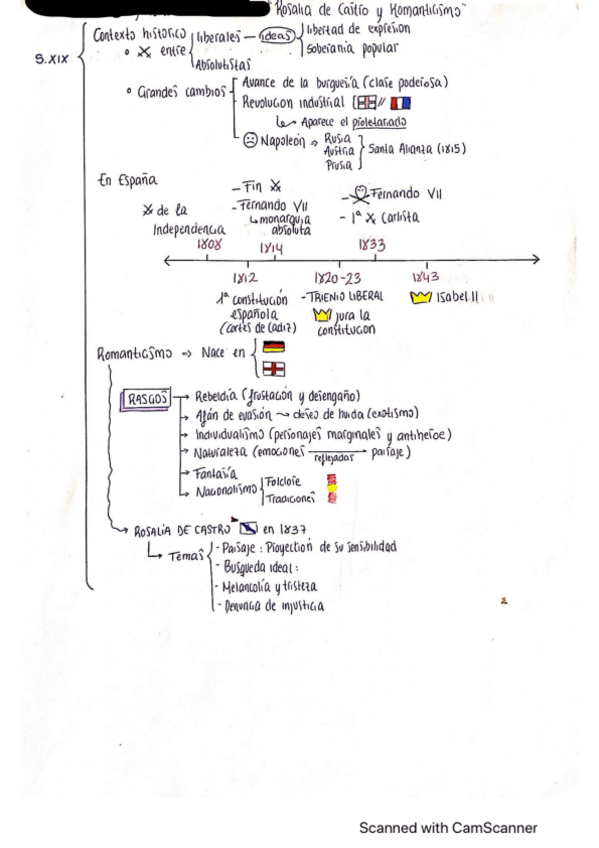 "Rosalía de Castro y Romanticismo"
S.XIX
Contexto histórico
entre
liberales — ideas
libertad de expresión
soberanía popular
Absolutistas
Grandes cambios
Avance de la burguesía (clase poderosa)
Revolución industrial
Aparece el proletariado
Napoleón
Rusia
Austria
Prusia
Santa Alianza (1815)
En España
de la
Independencia
1808
- Fin
- Fernando VII
monarquía
absoluta
1814
- Fernando VII
- 1ª Carlista
1833
1812
1ª constitución
española
(cortes de Cádiz)
1820-23
- TRIENIO LIBERAL
jura la
constitución
1843
Isabel II
Romanticismo → Nace en
RASGOS
Rebeldía (frustación y desengaño)
Afán de evasión → deseo de huida (exotismo)
Individualismo (personajes marginales y antiheroe)
Naturaleza (emociones reflejadas paisaje)
Fantasía
Nacionalismo
Folclore
Tradiciones
ROSALÍA DE CASTRO en 1837
Temas
- Paisaje: Proyección de su sensibilidad
- Busqueda ideal:
- Melancolía y tristeza
- Denuncia de injusticia
2
Scanned with CamScanner